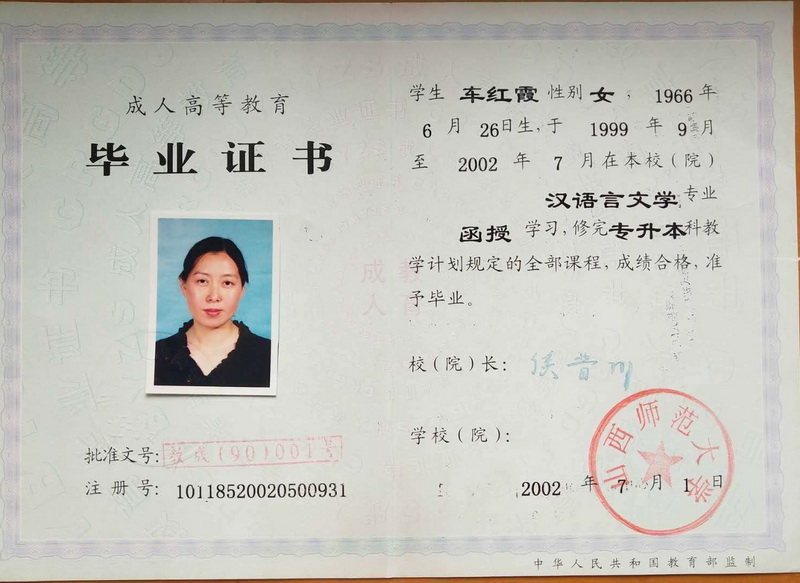 成人高等教育
毕业证书
批准文号:教成(90)001号
注册号:10118520020500931
学生 车红霞 性别 女,1966年
6月26日生,于1999年9月
至2002年7月在本校(院)
汉语言文学专业
函授学习,修完专升本科教
学计划规定的全部课程,成绩合格,准
予毕业。
校(院)长:侯晋川
学校(院):
山西师范大学
2002年7月1日
中华人民共和国教育部监制